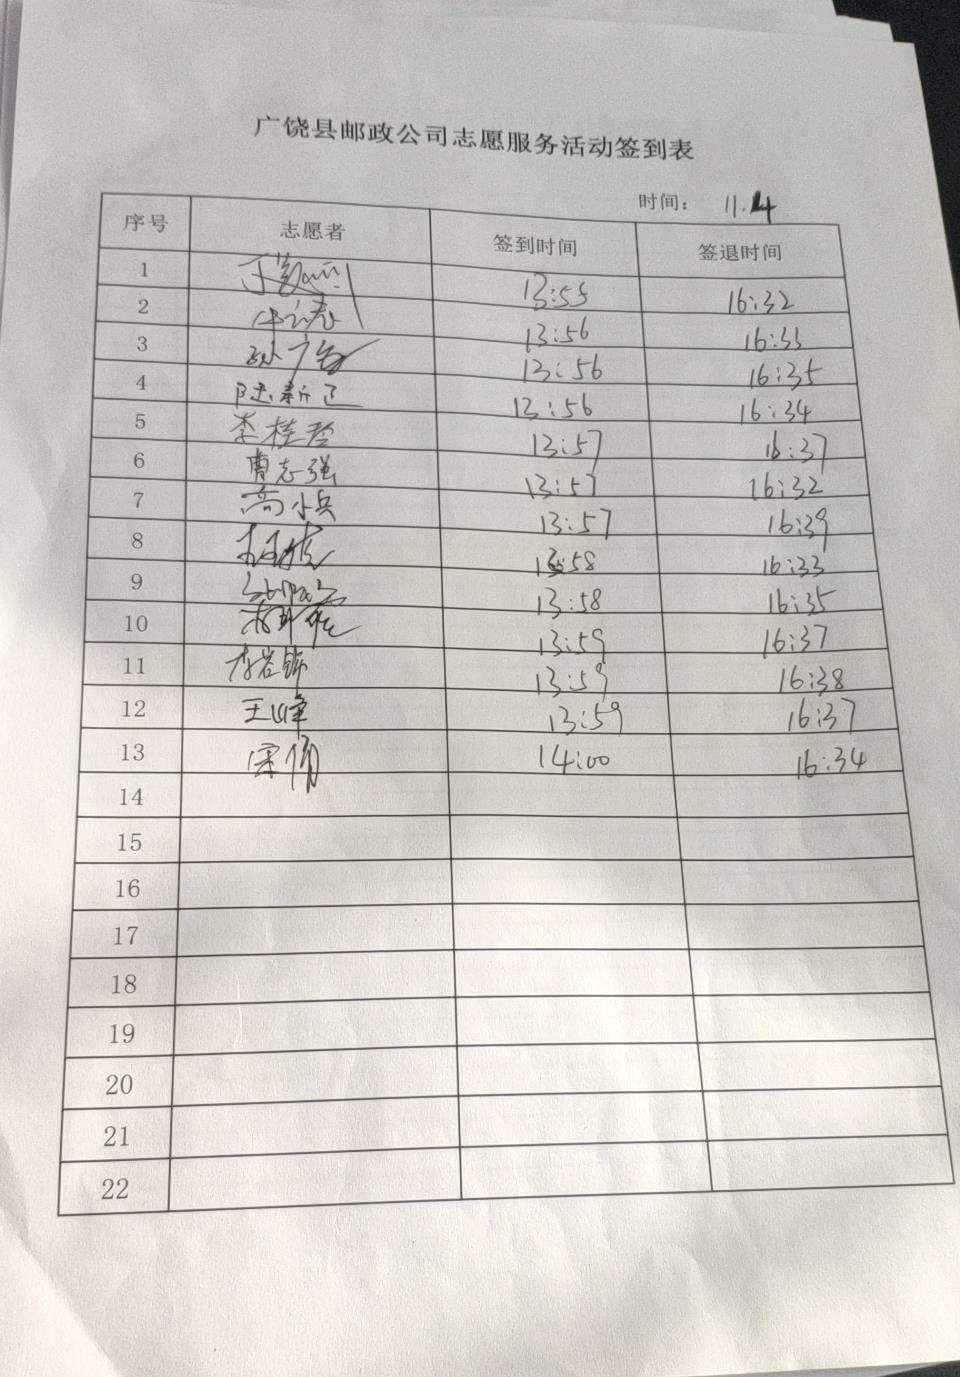 广饶县邮政公司志愿服务活动签到表
时间： 11.4
序号 志愿者 签到时间 签退时间
1 13:55 16:32
2 13:56 16:33
3 13:56 16:35
4 陆新正 13:56 16:34
5 李桂玲 13:57 16:37
6 曹志强 13:57 16:32
7 高小兵 13:57 16:39
8 13:58 16:33
9 13:58 16:35
10 13:59 16:37
11 李岩锦 13:59 16:38
12 王峰 13:59 16:37
13 宋倩 14:00 16:34
14
15
16
17
18
19
20
21
22